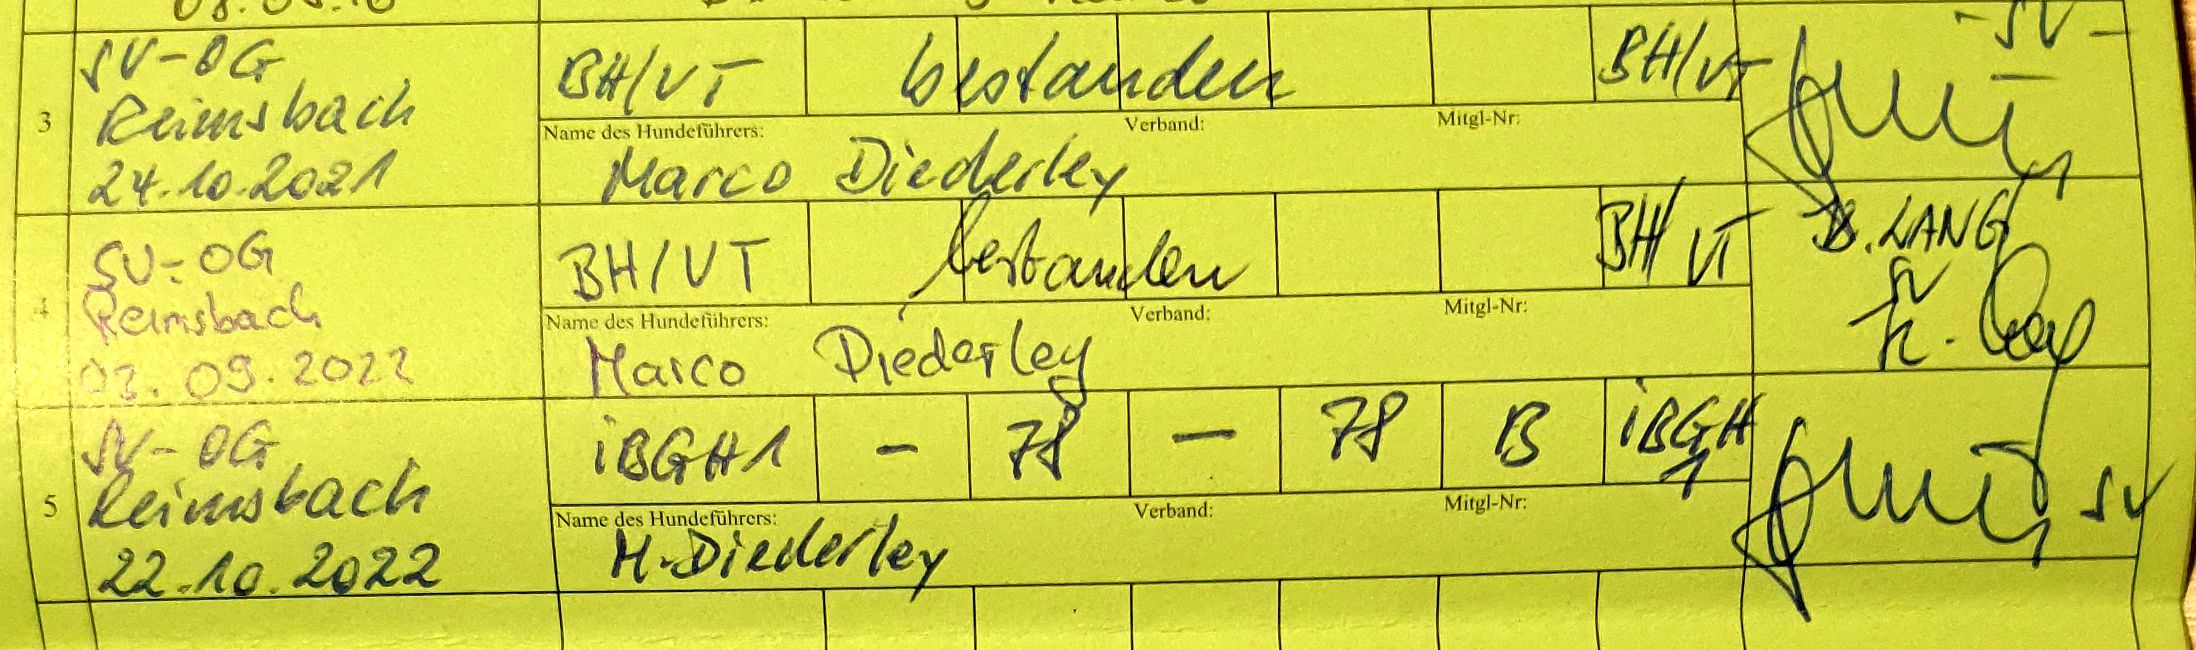 3
SV-OG
Reimsbach
24.10.2021
BH/VT bestanden BH/VT
Name des Hundeführers: Verband: Mitgl-Nr:
Marco Diederley
-SV-
4
SV-OG
Reimsbach
03.09.2022
BH/VT bestanden BH/VT
Name des Hundeführers: Verband: Mitgl-Nr:
Marco Diederley
B. LANG
5
SV-OG
Reimsbach
22.10.2022
iBGH1 - 78 - 78 B iBGH
1
Name des Hundeführers: Verband: Mitgl-Nr:
M. Diederley
SV